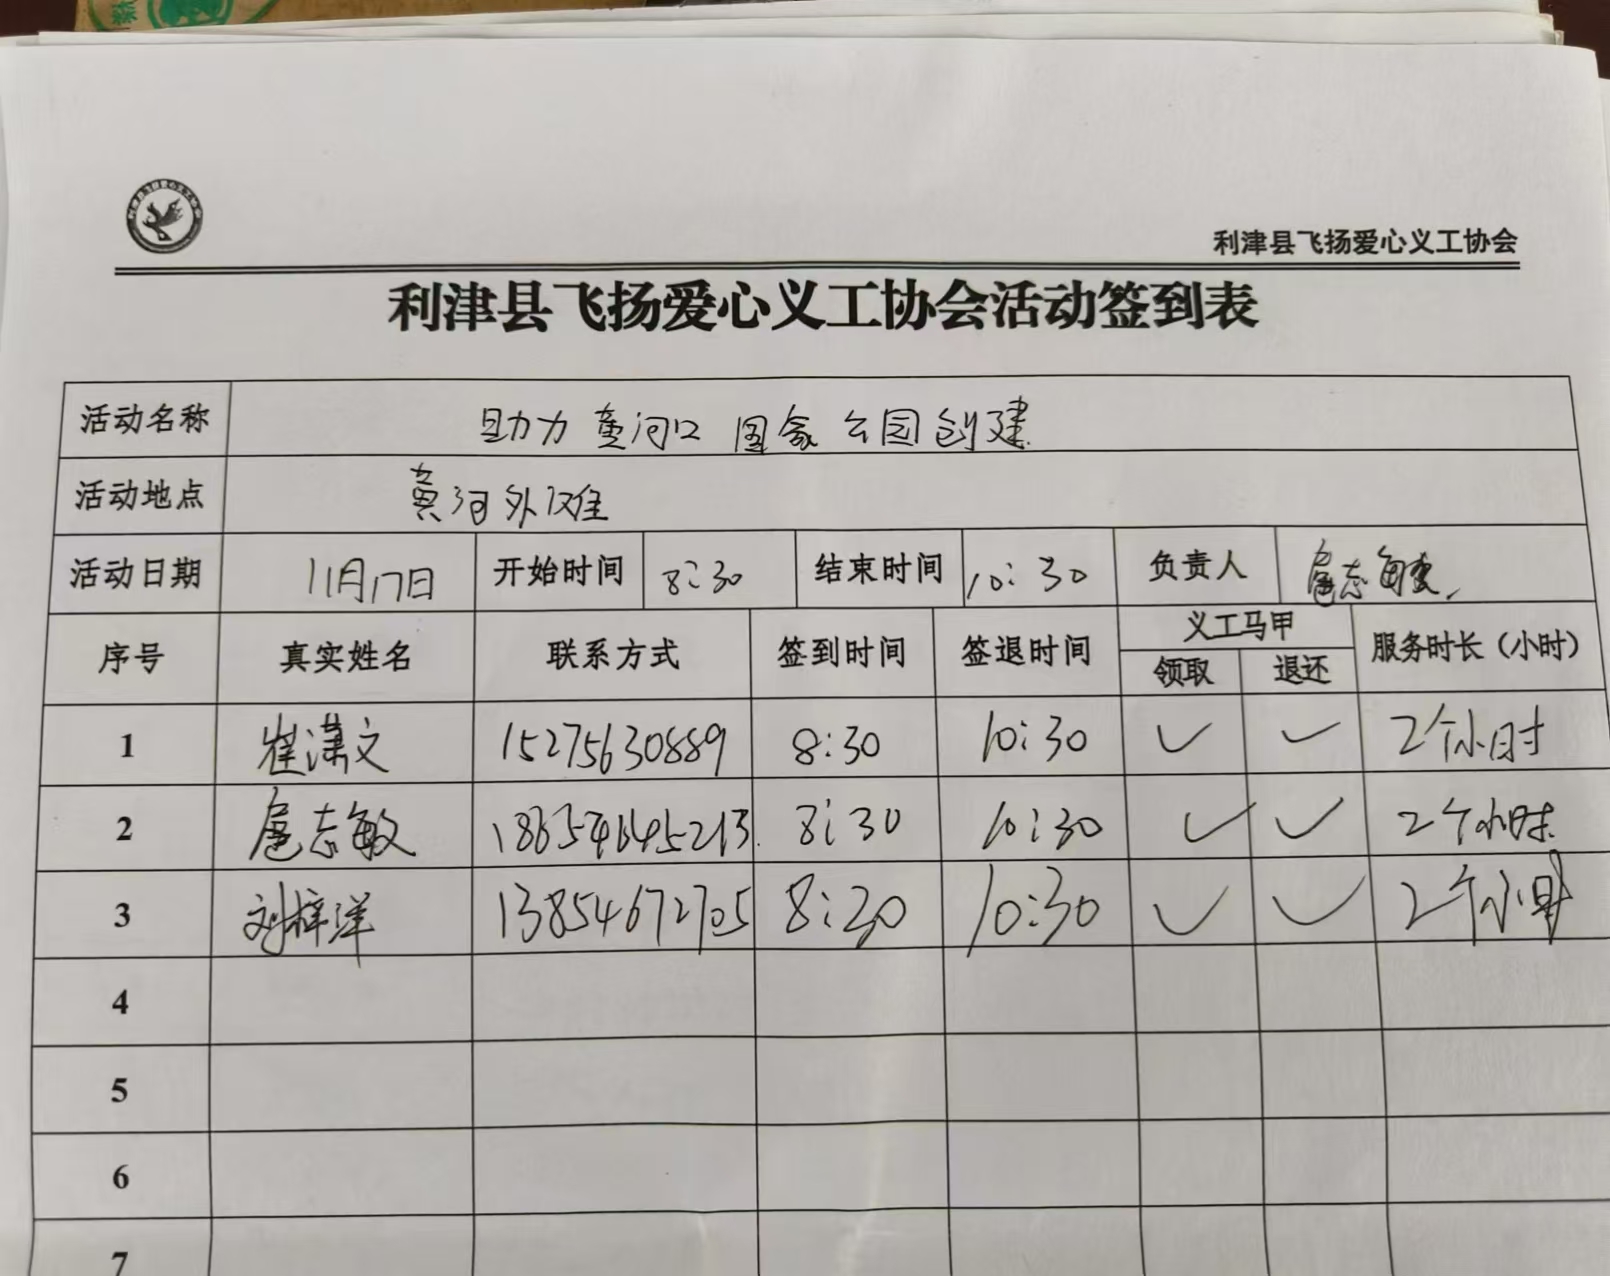 利津县飞扬爱心义工协会
利津县飞扬爱心义工协会活动签到表
活动名称 助力黄河口国家公园创建
活动地点 黄河外滩
活动日期 11月17日 开始时间 8:30 结束时间 10:30 负责人 扈志敏
序号 真实姓名 联系方式 签到时间 签退时间 义工马甲 服务时长（小时）
领取 退还
1 崔潇文 15275630889 8:30 10:30 ✓ ✓ 2个小时
2 扈志敏 18654645213 8:30 10:30 ✓ ✓ 2个小时
3 刘梓洋 13854672705 8:30 10:30 ✓ ✓ 2个小时
4
5
6
7